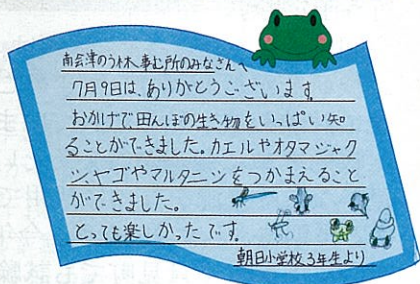 南会津のう林事む所のみなさんへ
7月9日は、ありがとうございます。
おかげで、田んぼの生き物をいっぱい知
ることができました。カエルやオタマジャク
シ、ヤゴやマルタニシをつかまえること
ができました。
とっても楽しかったです。
朝日小学校3年生より